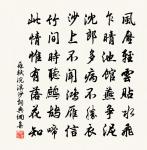 風壓輕雲貼水飛
乍晴池館燕爭泥
沈郎多病不勝衣
沙上不聞鴻雁信
竹間時聽鷓鴣啼
此情惟有落花知
蘇軾浣溪沙